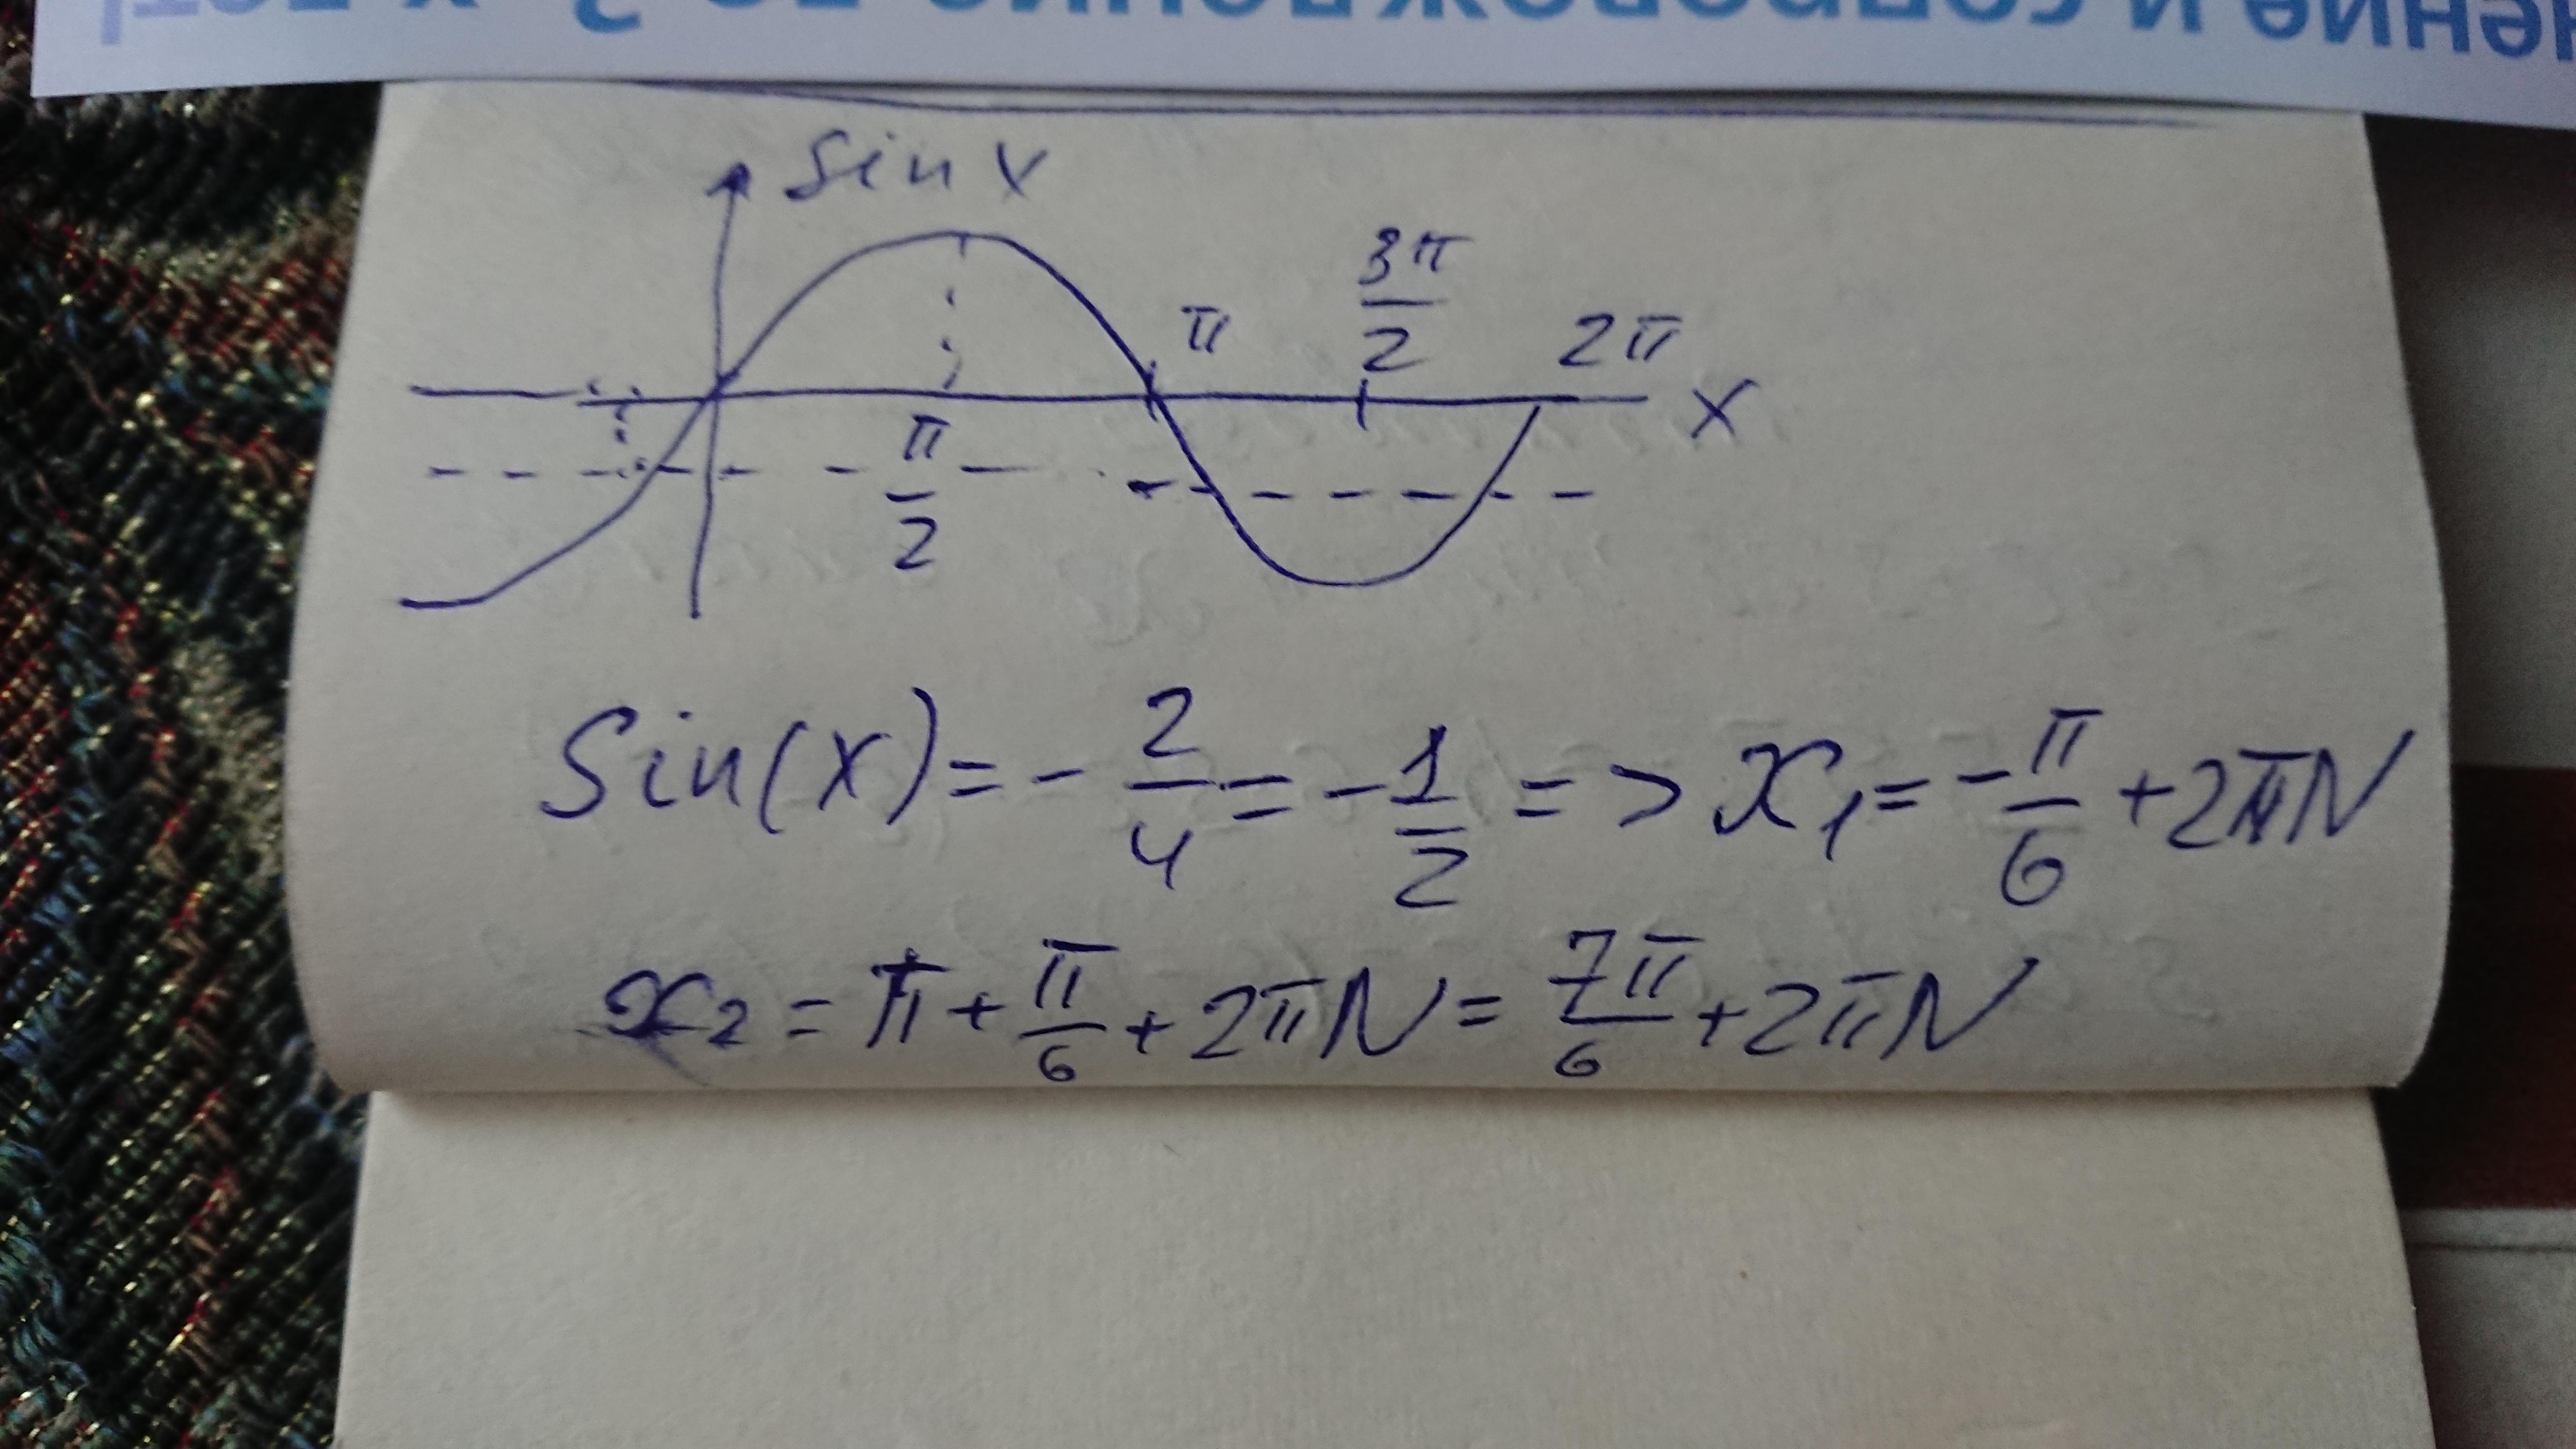 sin x
3π/2
π
2π
x
π/2
Sin(x) = - 2/4 = - 1/2 => x₁ = - π/6 + 2πN
x₂ = π + π/6 + 2πN = 7π/6 + 2πN